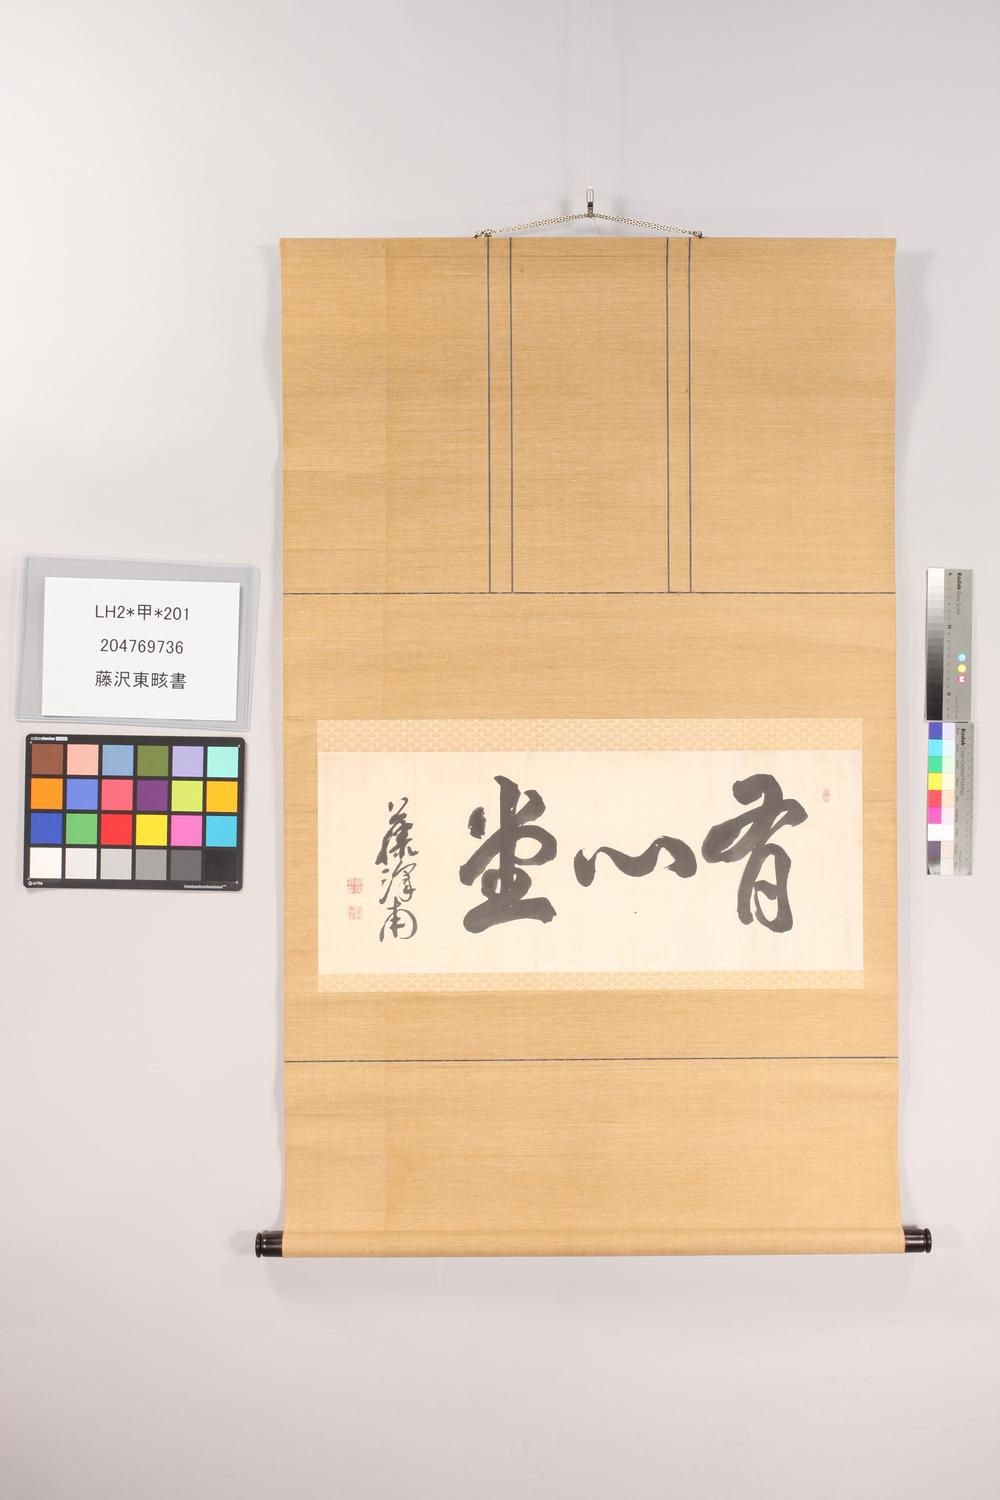 LH2*甲*201
204769736
藤沢東畡書
有心堂
藤澤甫
colorchecker
x-rite
Kodak Gray Scale
Kodak Color Control Patches